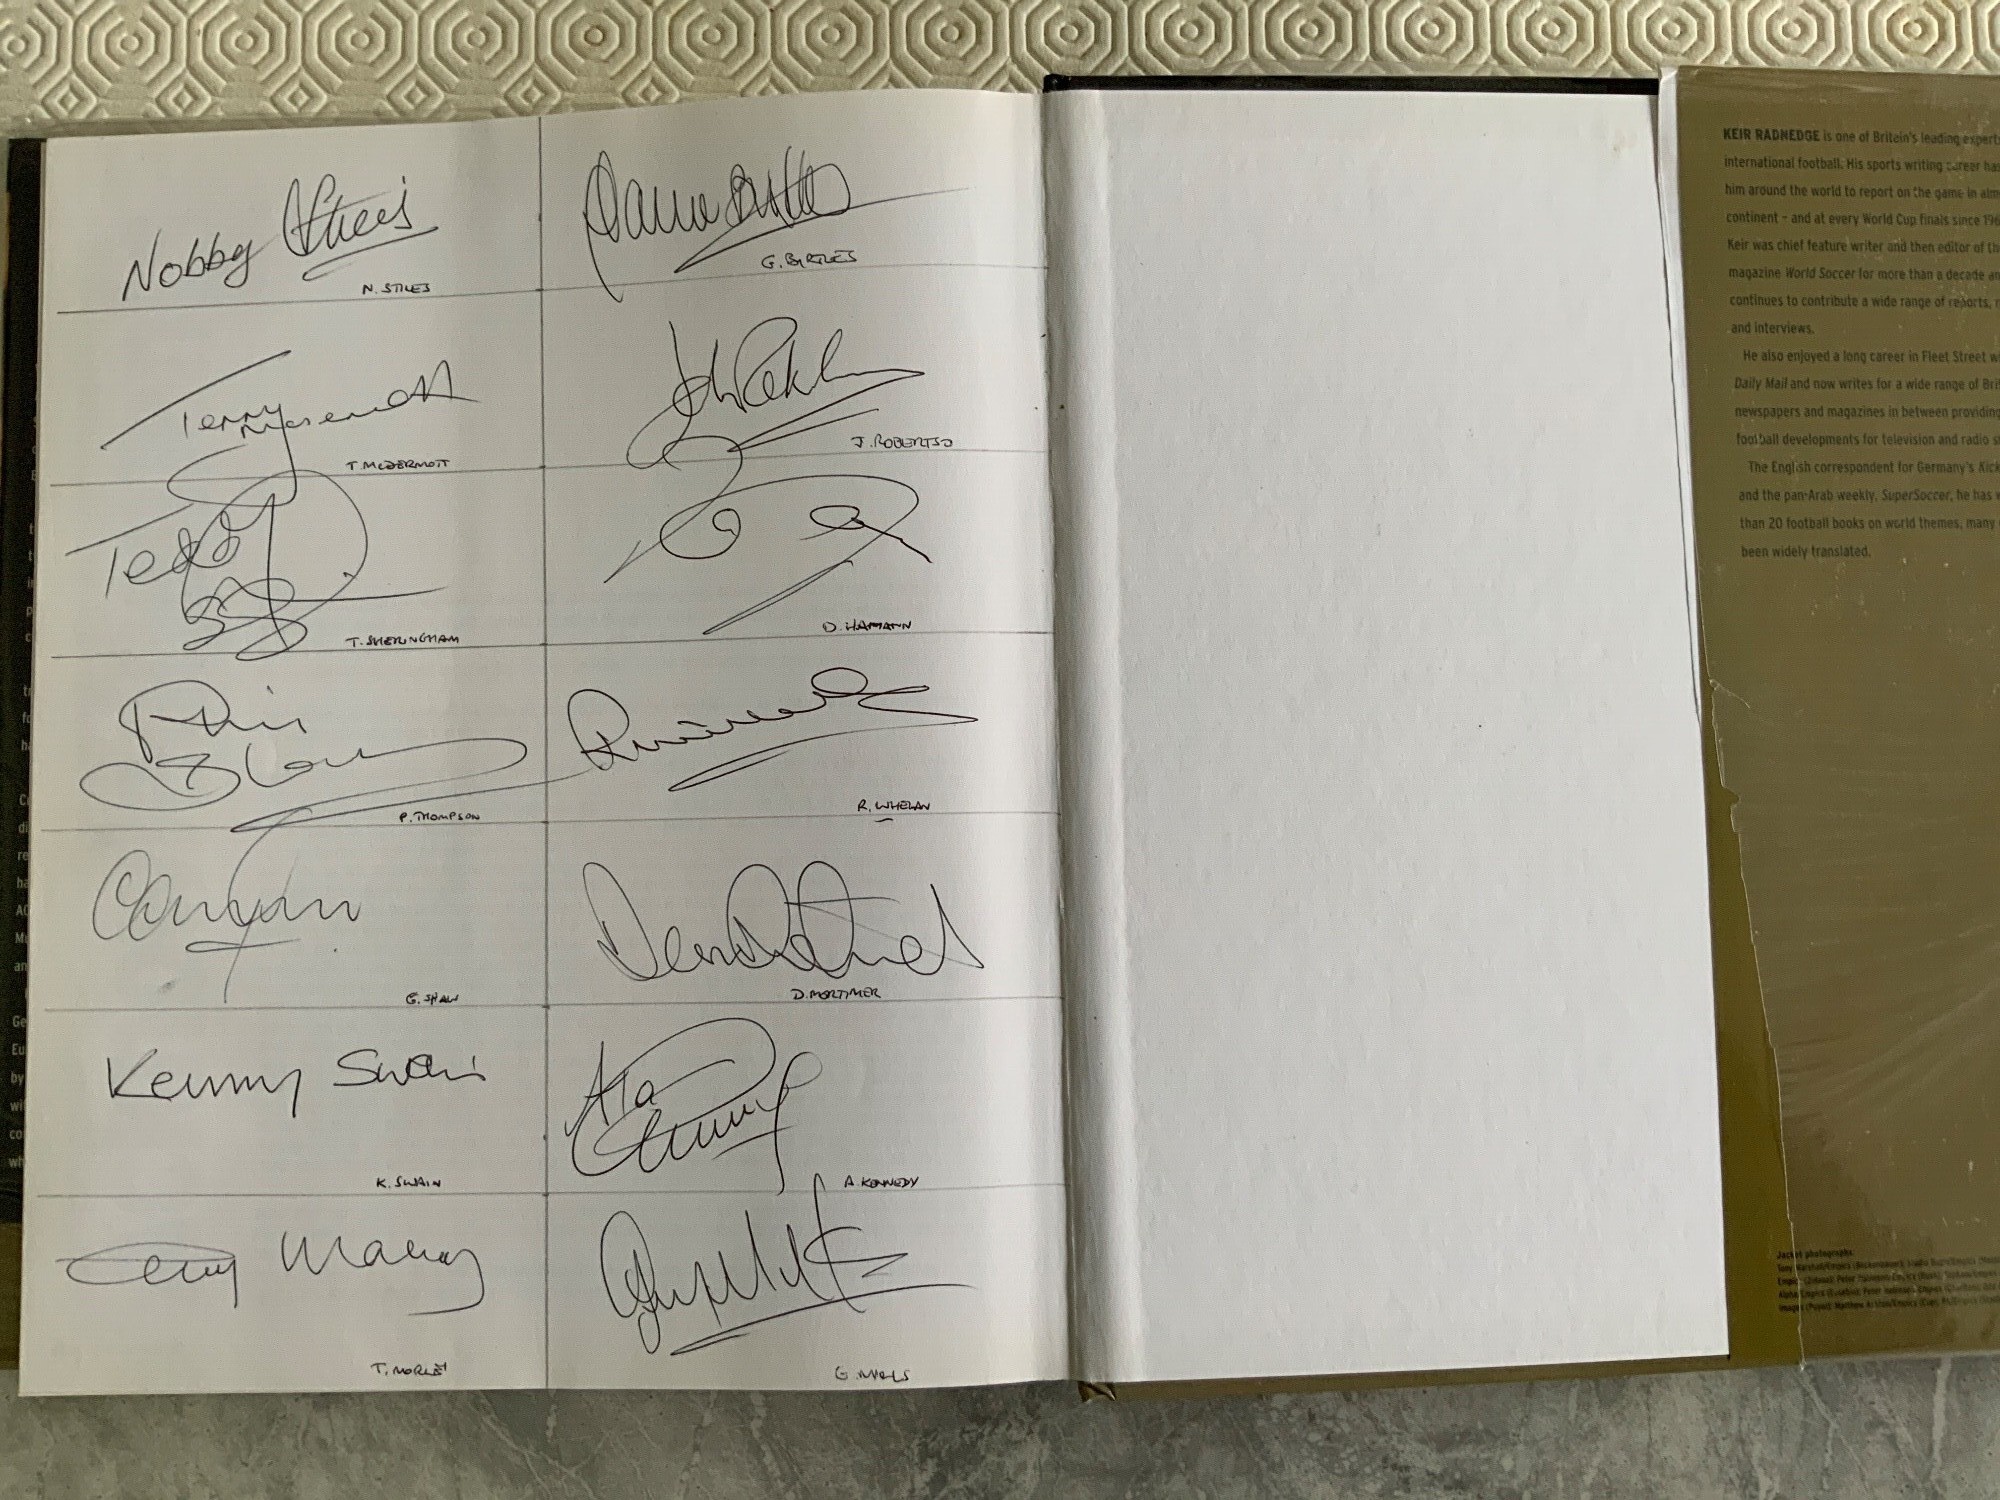 Nobby Stiles
N. STILES
G. BIRTLES
Terry McDermott
T. McDERMOTT
J. ROBERTSO
Teddy
T. SHERINGHAM
D. HAMANN
Phil
P. THOMPSON
R. WHELAN
G. SHAW
D. MORTIMER
Kenny Swain
K. SWAIN
Alan Kennedy
A. KENNEDY
T. MORLEY
G. MILLS
KEIR RADNEDGE is one of Britain's leading experts
international football. His sports writing career has
him around the world to report on the game in alm
continent – and at every World Cup finals since 196
Keir was chief feature writer and then editor of th
magazine World Soccer for more than a decade an
continues to contribute a wide range of reports,
and interviews.
He also enjoyed a long career in Fleet Street w
Daily Mail and now writes for a wide range of Bri
newspapers and magazines in between providing
football developments for television and radio s
The English correspondent for Germany's Kick
and the pan-Arab weekly, SuperSoccer, he has w
than 20 football books on world themes, many
been widely translated.
Jacket photographs